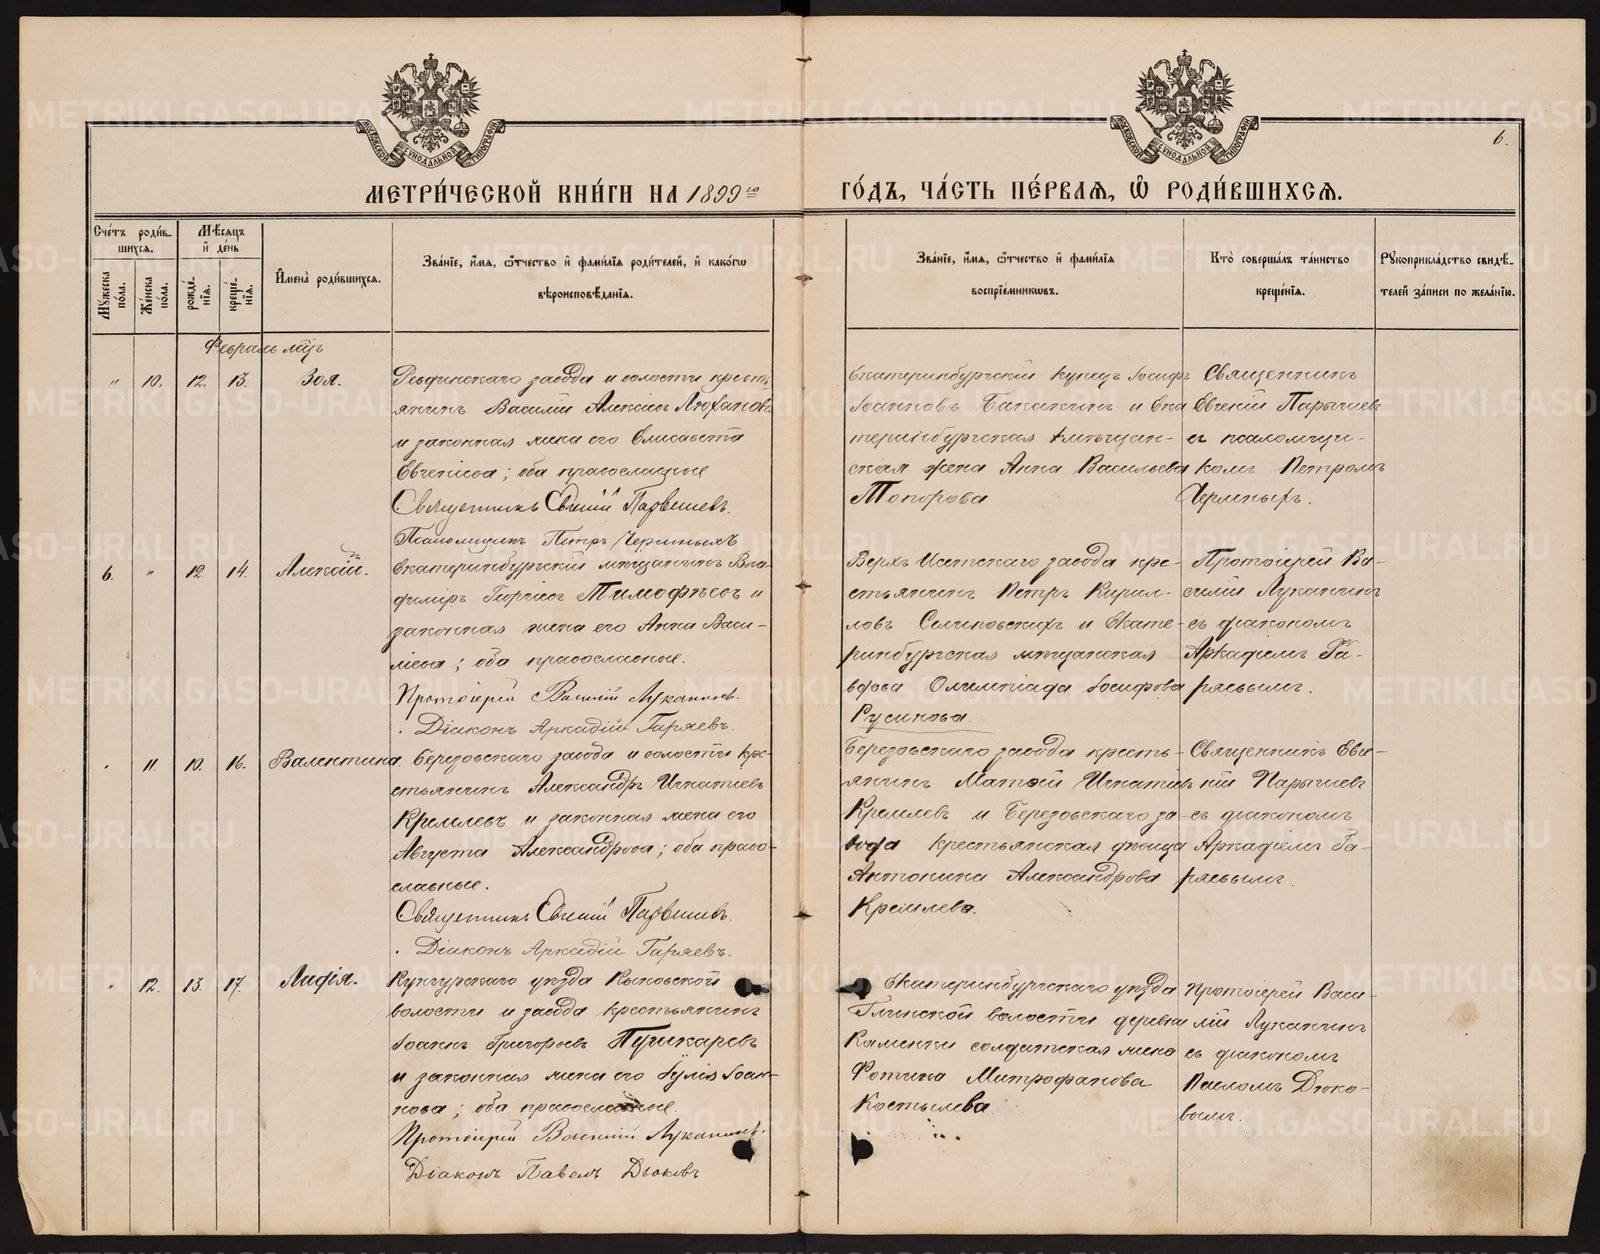 МЕТРИ́ЧЕСКОЙ КНИ́ГИ НА 1899го
ГО́ДЪ, ЧА́СТЬ ПЕ́РВАѦ, Ѿ РОДИ́ВШИХСѦ.
6.
Сче́тъ роди́в-
шихсѧ.
Мꙋ́жеска по́ла.
Же́нска по́ла.
Мѣ́сѧцъ и҆ де́нь
рожде́-
нїѧ.
креще́-
нїѧ.
И҆мена̀ роди́вшихсѧ.
Зва́нїе, и҆́мѧ, ѻ҆́тчество и҆ фами́лїѧ роди́телей, и҆ како́гѡ
вѣроисповѣ́данїѧ.
Зва́нїе, и҆́мѧ, ѻ҆́тчество и҆ фами́лїѧ
воспрїе́мникѡвъ.
Кто̀ соверша́лъ та́инство
креще́нїѧ.
Рꙋкоприкла́дство свидѣ́-
телей за́писи по жела́нїю.
Февраль мцъ
" 10. 12. 13. Зоя.
Ревдинскаго завода и волости кресть
янинъ Василій Алексіевъ
и законная жена его Елисавета
Евгеніева; оба православные
Священникъ Евгеній
Псаломщикъ Петръ Черныхъ
Екатеринбургскій купецъ Іосифъ
Іоанновъ и Ека
теринбургская мѣщан-
ская жена Анна Васильева
Топорова
Священникъ
Евгеній
съ псаломщи-
комъ Петромъ
6. " 12. 14. Алексій.
Екатеринбургскій мѣщанинъ Вла-
диміръ Георгіевъ Тимофѣевъ и
законная жена его Анна Васи-
ліева; оба православные.
Протоіерей Василій Луканинъ.
Діаконъ Аркадій Гаряевъ.
Верхъ-Исетскаго завода кре-
стьянинъ Петръ Кирил-
ловъ Селиновскихъ и Екате-
ринбургская мѣщанская
вдова Олимпіада Іосифова
Русинова.
Протоіерей Ва-
силій Луканинъ
съ діакономъ
Аркадіемъ Га-
ряевымъ.
11. 10. 16. Валентина.
Березовскаго завода и волости кре-
стьянинъ Александръ Игнатіевъ
Кремлевъ и законная жена его
Августа Александрова; оба право-
славные.
Священникъ Евгеній
Діаконъ Аркадій Гаряевъ.
Березовскаго завода кресть-
янинъ Матѳей Игнатіевъ
Кремлевъ и Березовскаго за-
вода крестьянская дѣвица
Антонина Александрова
Кремлева.
Священникъ Евге-
ній
съ діакономъ
Аркадіемъ Га-
ряевымъ.
12. 13. 17. Лидія.
Кунгурскаго уѣзда Кыновской
волости и завода крестьянинъ
Іоаннъ Григорьевъ Пушкаревъ
и законная жена его Іулія Іоан-
нова; оба православные.
Протоіерей Василій Луканинъ.
Діаконъ Павелъ Дюковъ
Екатеринбургскаго уѣзда
Глинской волости деревни
Каменки солдатская жена
Фотина Митрофанова
Костылева
Протоіерей Васи-
лій Луканинъ
съ діакономъ
Павломъ Дюко-
вымъ.
METRIKI.GASO-URAL.RU